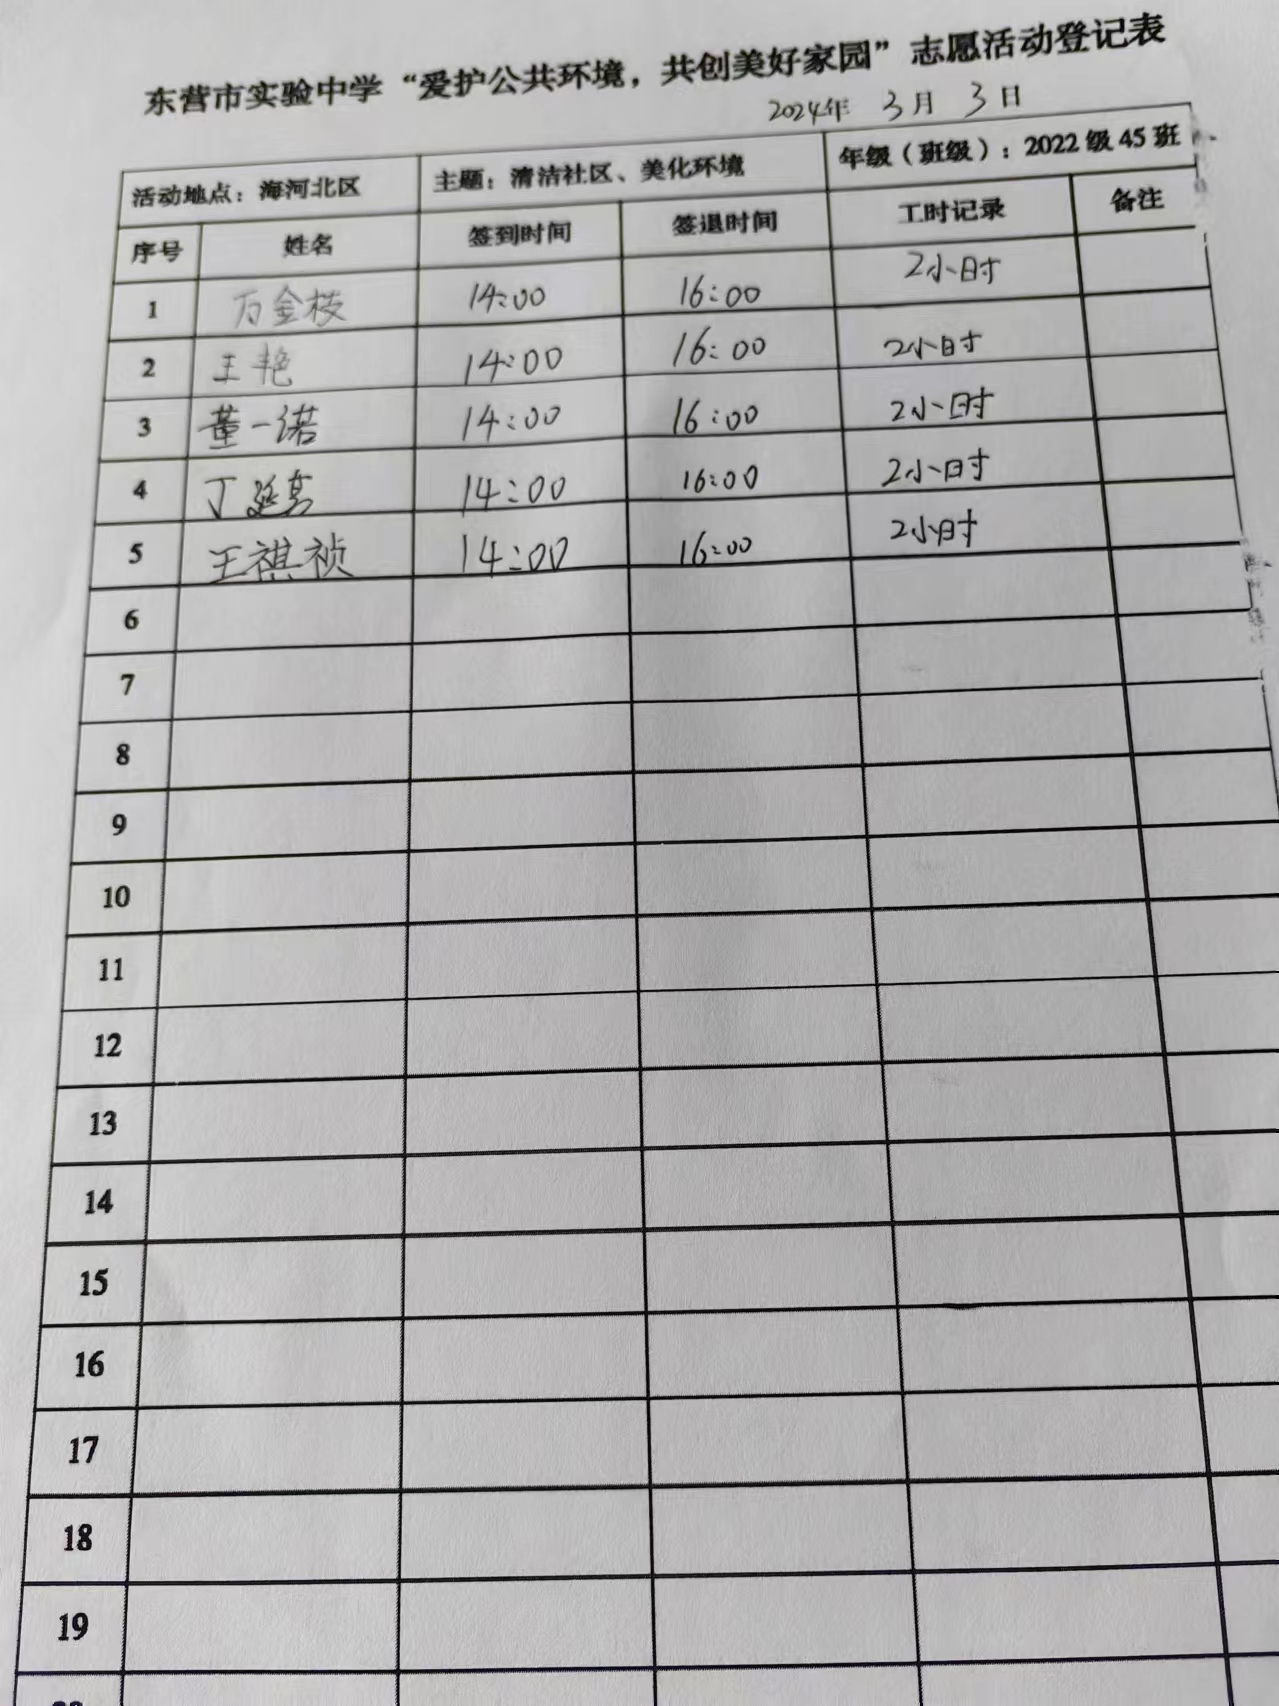 东营市实验中学“爱护公共环境，共创美好家园”志愿活动登记表
2024年 3月 3日
活动地点：海河北区 主题：清洁社区、美化环境 年级（班级）：2022级45班
序号 姓名 签到时间 签退时间 工时记录 备注
1 万金枝 14:00 16:00 2小时
2 王艳 14:00 16:00 2小时
3 董一诺 14:00 16:00 2小时
4 丁延 14:00 16:00 2小时
5 王祺祯 14:00 16:00 2小时
6
7
8
9
10
11
12
13
14
15
16
17
18
19